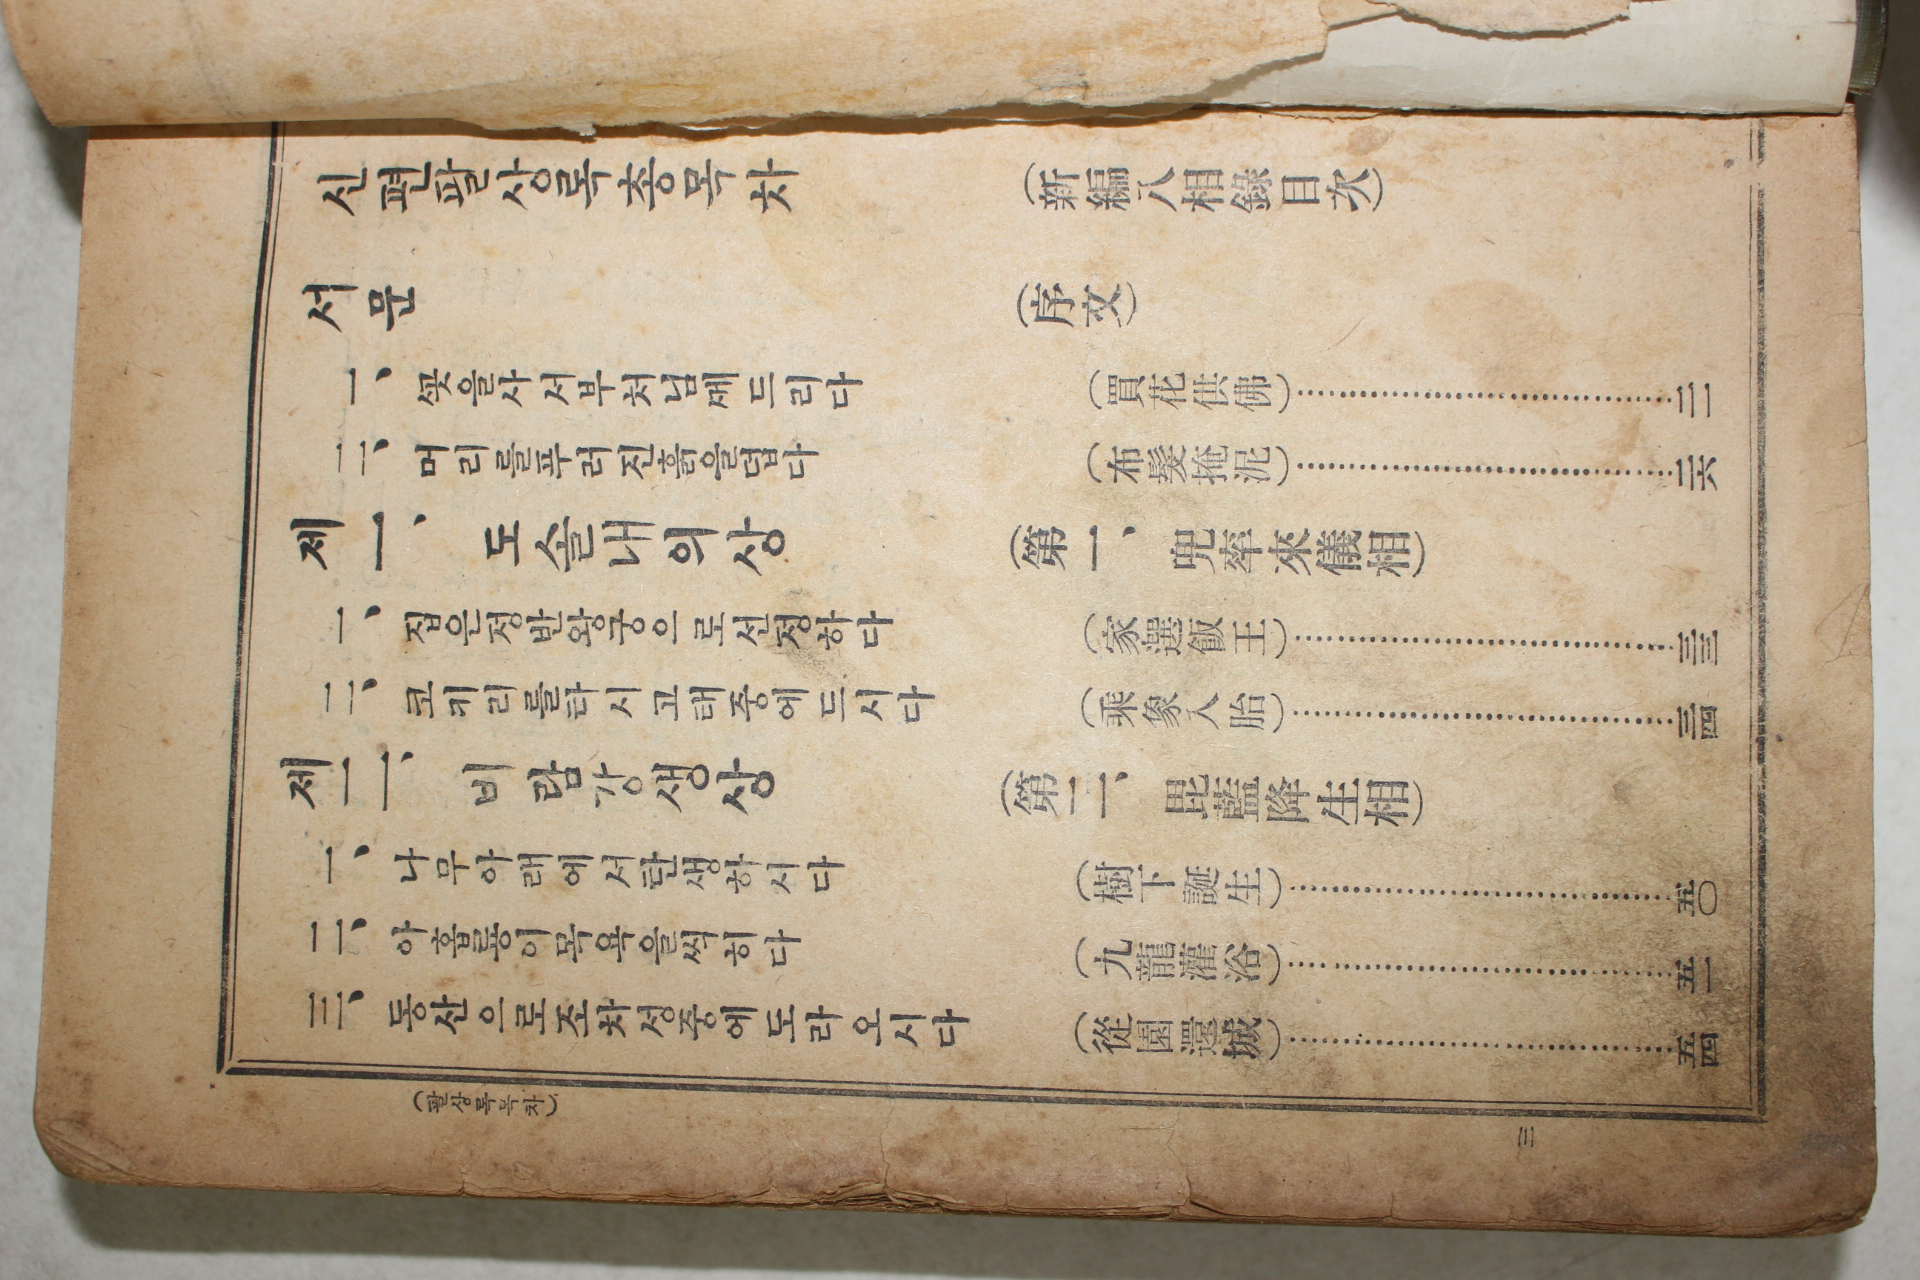 신편팔상록총목차 (新編八相錄目次)
서문 (序文)
一、 꼿을사서부처님께드리다 (買花供佛) 二一
二、 머리를푸러진흙을덥다 (布髮掩泥) 二六
제一、 도솔내의상 (第一、 兜率來儀相)
一、 집은정반왕궁으로선정하다 (家選飯王) 三三
二、 코키리를타시고태중에드시다 (乘象入胎) 三四
제二、 비람강생상 (第二、 毘藍降生相)
一、 나무아래에서탄생하시다 (樹下誕生) 五〇
二、 아홉룡이목욕을씩히다 (九龍灌浴) 五一
三、 동산으로조차성중에도라오시다 (從園還城) 五四
(팔상록목차)
三